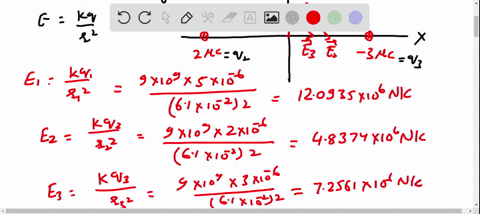 E = kq/r²
2μC = q₂ E₃ E₂ -3μC = q₃ X
E₁ = kq₁/r₁² = 9×10⁹×5×10⁻⁶/(6.1×10⁻²)2 = 12.0935×10⁶ N/C
E₂ = kq₂/r₂² = 9×10⁹×2×10⁻⁶/(6.1×10⁻²)2 = 4.8374×10⁶ N/C
E₃ = kq₃/r₃² = 9×10⁹×3×10⁻⁶/(6.1×10⁻²)2 = 7.2561×10⁶ N/C